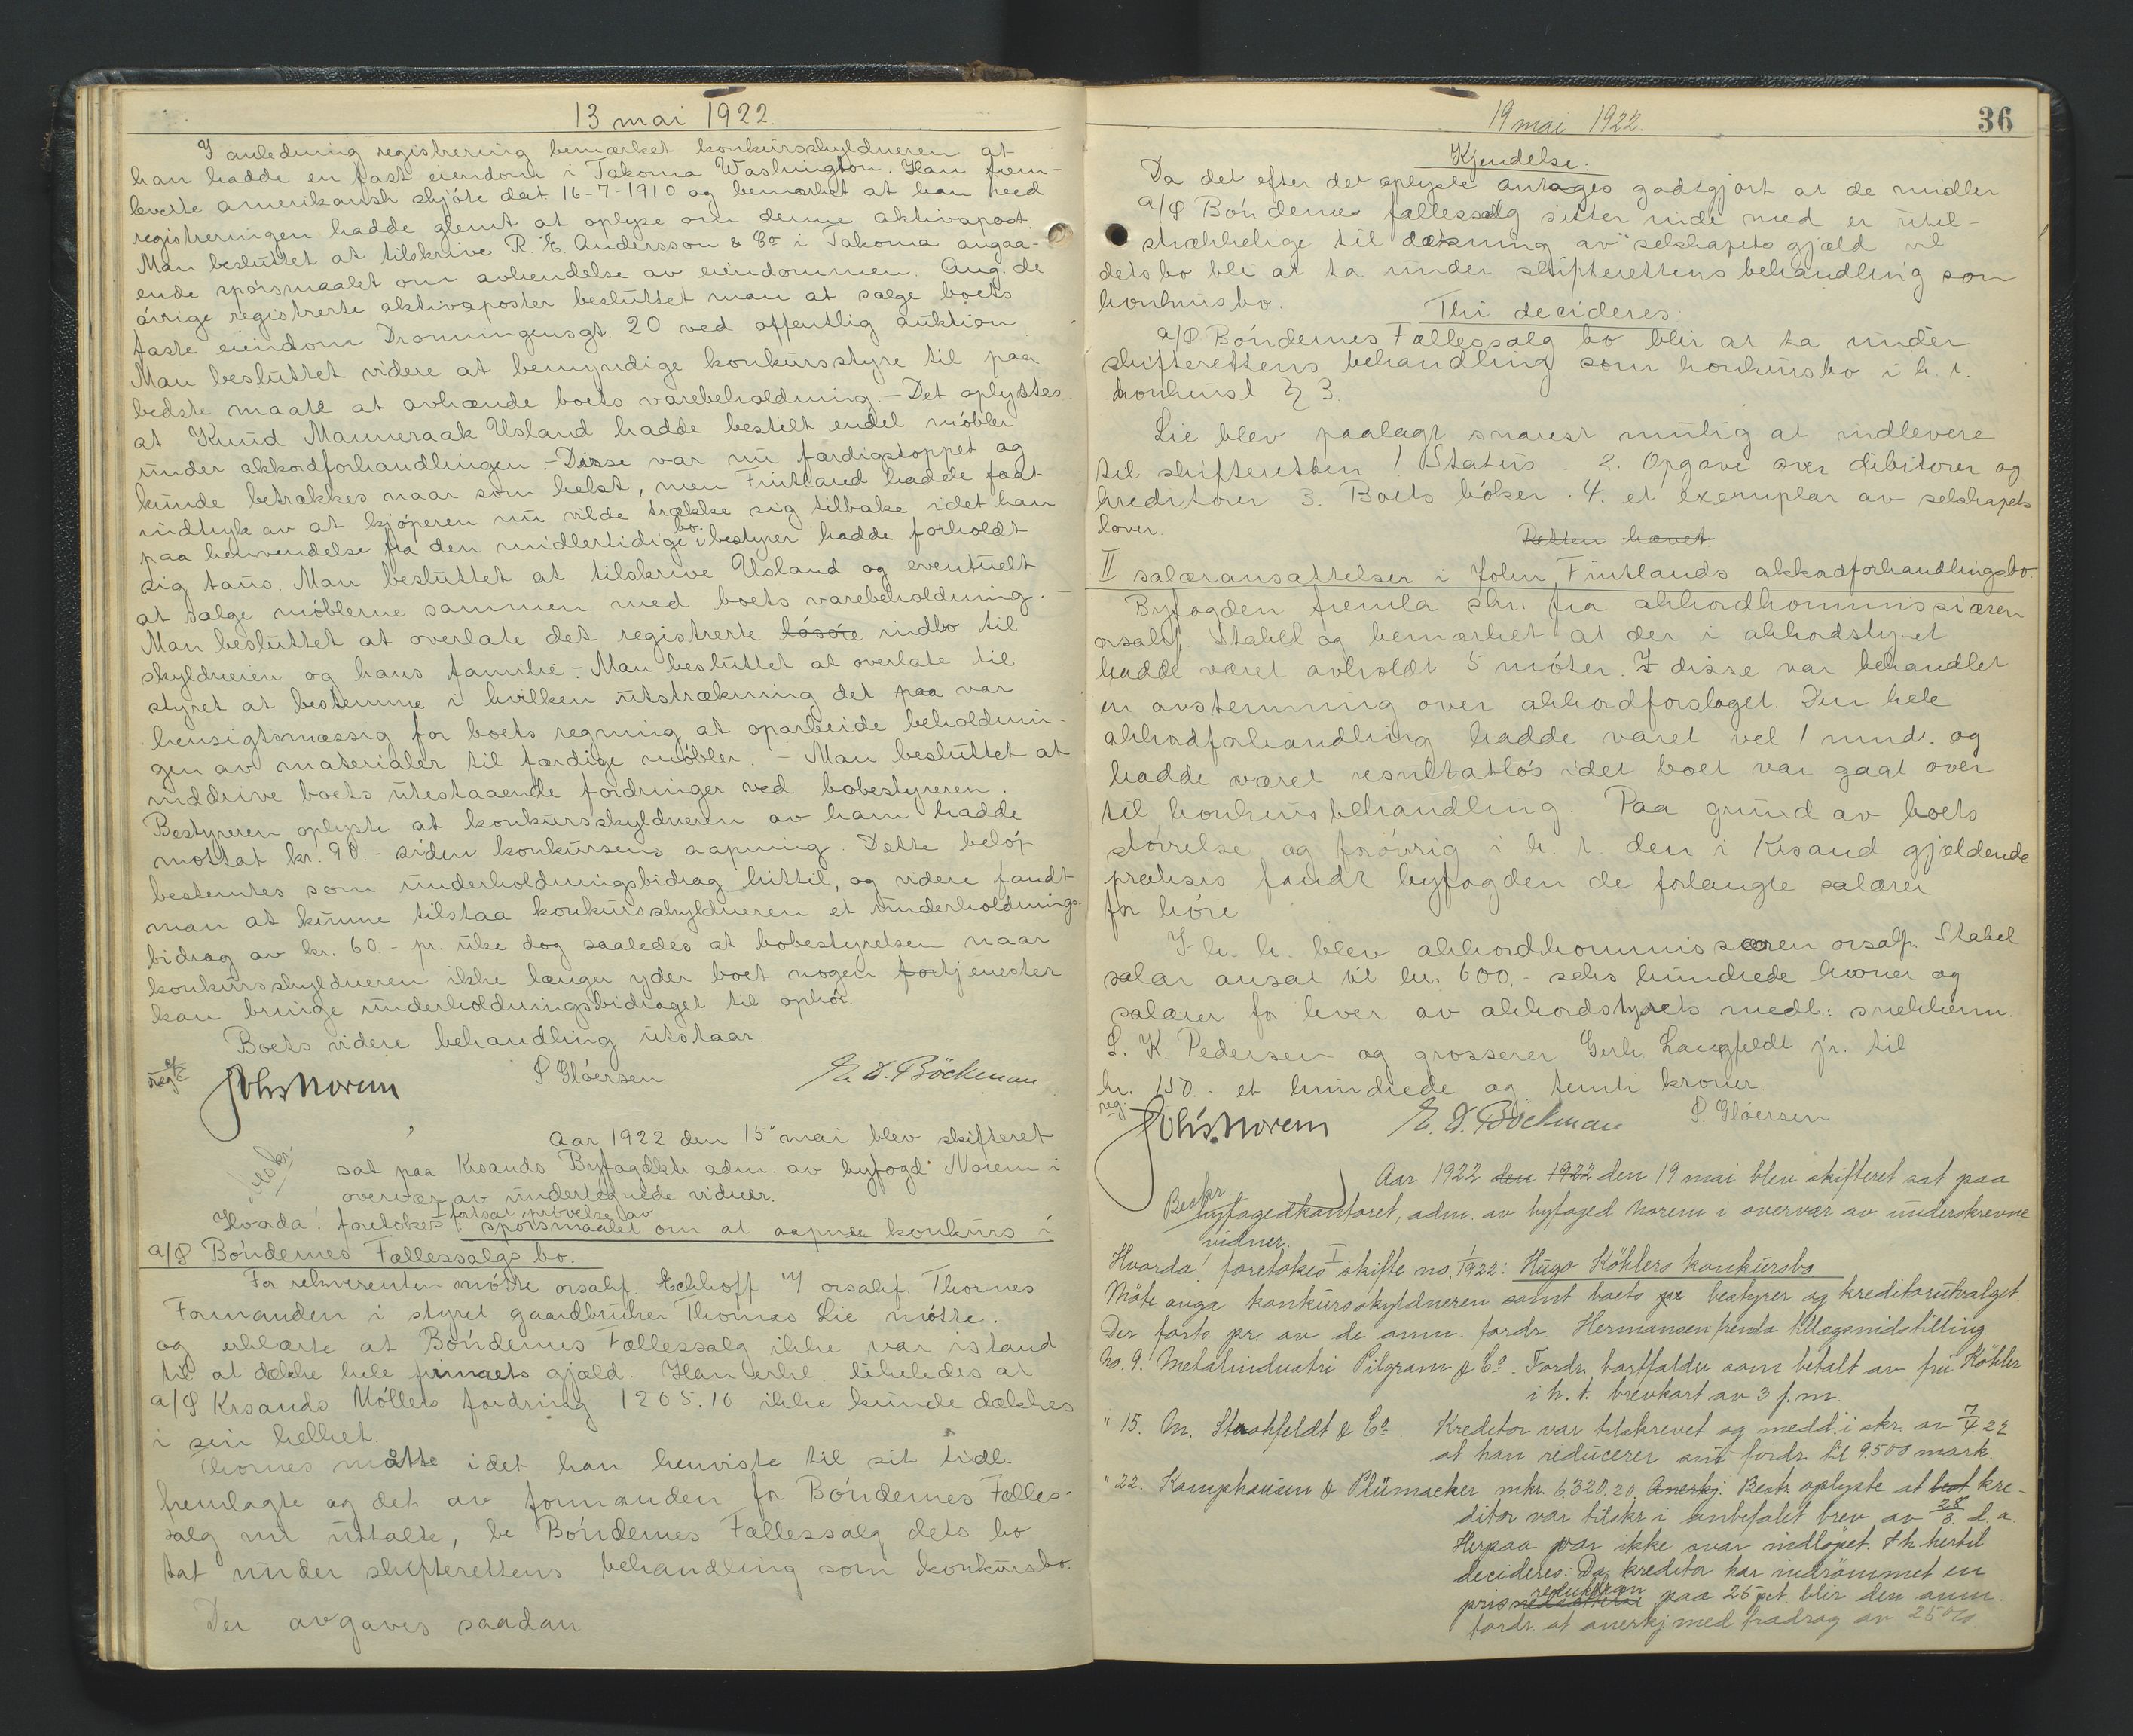 13 mai 1922.
I anledning registrering bemærket konkursskyldneren at
han hadde en fast eiendom i Takoma Washington. Han frem-
leverte amerikansk skjöte dat. 16-7-1910 og bemærket at han ved
registreringen hadde glemt at oplyse om denne aktivapost.
Man besluttet at tilskrive R. E. Andersson & Co i Takoma angaa-
ende spörsmaalet om avhendelse av eiendommen. Ang. de
övrige registrerte aktivaposter besluttet man at sælge boets
faste eiendom Dronningensgt. 20 ved offentlig auktion.
Man besluttet videre at bemyndige konkursstyre til paa
bedste maate at avhænde boets varebeholdning. - Det oplystes
at Knud Manneraak Usland hadde bestilt endel möbler
under akkordforhandlingen. - Disse var nu færdigstoppet og
kunde betrækkes naar som helst, men Fintland hadde faat
indtryk av at kjöperen nu vilde trække sig tilbake idet han
paa henvendelse fra den midlertidige bo-bestyrer hadde forholdt
sig taus. Man besluttet at tilskrive Usland og eventuelt
at sælge möblerne sammen med boets varebeholdning. -
Man besluttet at overlate det registrerte lösöre indbo til
skyldneren og hans familie. - Man besluttet at overlate til
styret at bestemme i hvilken utstrækning det paa var
hensigtsmæssig for boets regning at oparbeide beholdnin-
gen av materialer til færdige möbler. - Man besluttet at
inddrive boets utestaaende fordringer ved bobestyreren.
Bestyreren oplyste at konkursskyldneren av ham hadde
mottat kr. 90.- siden konkursens aapning. Dette belöp
bestemtes som underholdningsbidrag hittil, og videre fandt
man at kunne tilstaa konkursskyldneren et underholdnings-
bidrag av kr. 60.- pr. uke dog saaledes at bobestyrelsen naar
konkursskyldneren ikke længer yder boet nogen fortjenester
kan bringe underholdningsbidraget til ophör.
Boets videre behandling utstaar.
Johs Norem S. Glöersen E. D. Böckman
Aar 1922 den 15 mai blev skifteret
sat paa Krsands Byfogdktr. adm. av byfogd Norem i
overvær av undertegnede vidner.
Hvorda! foretokes I fortsat prövelse av spörsmaalet om at aapne konkurs i
a/S Böndernes Fællessalgs bo.
For rekvirenten mötte orsakf. Eckhoff v/ orsakf. Thornes
Formanden i styret gaardbruker Thomas Lie mötte.
og erklærte at Böndernes Fællessalg ikke var istand
til at dække hele firmaets gjæld. Han erkl. likeledes at
a/S Krsands Möllers fordring 1205.10 ikke kunde dækkes
i sin helhet.
Thornes mötte idet han henviste til sit tidl.
fremlagte og det av formanden for Böndernes Fælles-
salg nu uttalte, be Böndernes Fællessalg dets bo
tat under skifterettens behandling som konkursbo.
Der avgaves saadan
19 mai 1922. 36
Kjendelse:
Da det efter det oplyste antages godtgjort at de midler
a/S Böndernes fællessalg sitter inde med er util-
strækkelige til dækning av selskapets gjæld vil
dets bo bli at ta under skifterettens behandling som
konkursbo.
Thi decideres
a/S Böndernes Fællessalg bo blir at ta under
skifterettens behandling som konkursbo i h. t.
konkursl. § 3.
Lie blev paalagt snarest mulig at indlevere
til skifteretten 1 Status. 2. Opgave over debitorer og
kreditorer 3. Boets böker. 4. et exemplar av selskapets
lover.
Retten hævet
II salæransættelser i John Fintlands akkordforhandlingsbo.
Byfogden fremla skr. fra akkordkommissiæren
orsakf. Stabel og bemærket at der i akkordstyret
hadde været avholdt 5 möter. I disse var behandlet
en avstemning over akkordforslaget. Den hele
akkordforhandling hadde varet vel 1 mnd. og
hadde været resultatlös idet boet var gaat over
til konkursbehandling. Paa grund av boets
störrelse og forövrig i h. t. den i Krsand gjældende
praksis fandt byfogden de forlangte salærer
for höie
I h. h. blev akkordkommissæren orsakf. Stabel
salær ansat til kr. 600.- seks hundrede kroner og
salærer for hver av akkordstyrets medl.: snekkerm.
S. K. Pedersen og grosserer Gerh. Langfeldt jr. til
kr. 150.- et hundrede og femti kroner.
reg.
Johs. Norem E. D. Böckman S. Glöersen
Aar 1922 den 1922 den 19 mai blev skifteret sat paa
Beskr.
byfogedkontoret, adm. av byfoged Norem i overvær av underskrevne
vidner.
Hvorda! foretokes I skifte no. 1/1922: Hugo Köhlers konkursbo
Möte anga konkursskyldneren samt boets bestyrer og kreditorutvalget.
Der forts. pr. av de anm. fordr. Hermansen fremla tillægsindstilling
No. 9. Metalindustri Pilgram & Co. Fordr. bortfalder som betalt av fru Köhler
i h. t. brevkort av 3 f. m.
" 15. M. Strohfeldt & Co Kreditor var tilskrevet og medd. i skr. av 7/4 22
at han reducerer sin fordr. til 9.500 mark.
" 22. Kamphausen & Plümacher mrk. 6,320,20, Anerkj. Bestr. oplyste at best kre-
ditor var tilskr. i anbefalet brev av 28/3 d. a.
Herpaa var ikke svar indlöpet. I h. hertil
decideres: Da kreditor har indrömmet en
prisreduktion paa 25 pct. blir den anm.
fordr. at anerkj med fradrag av 25 %